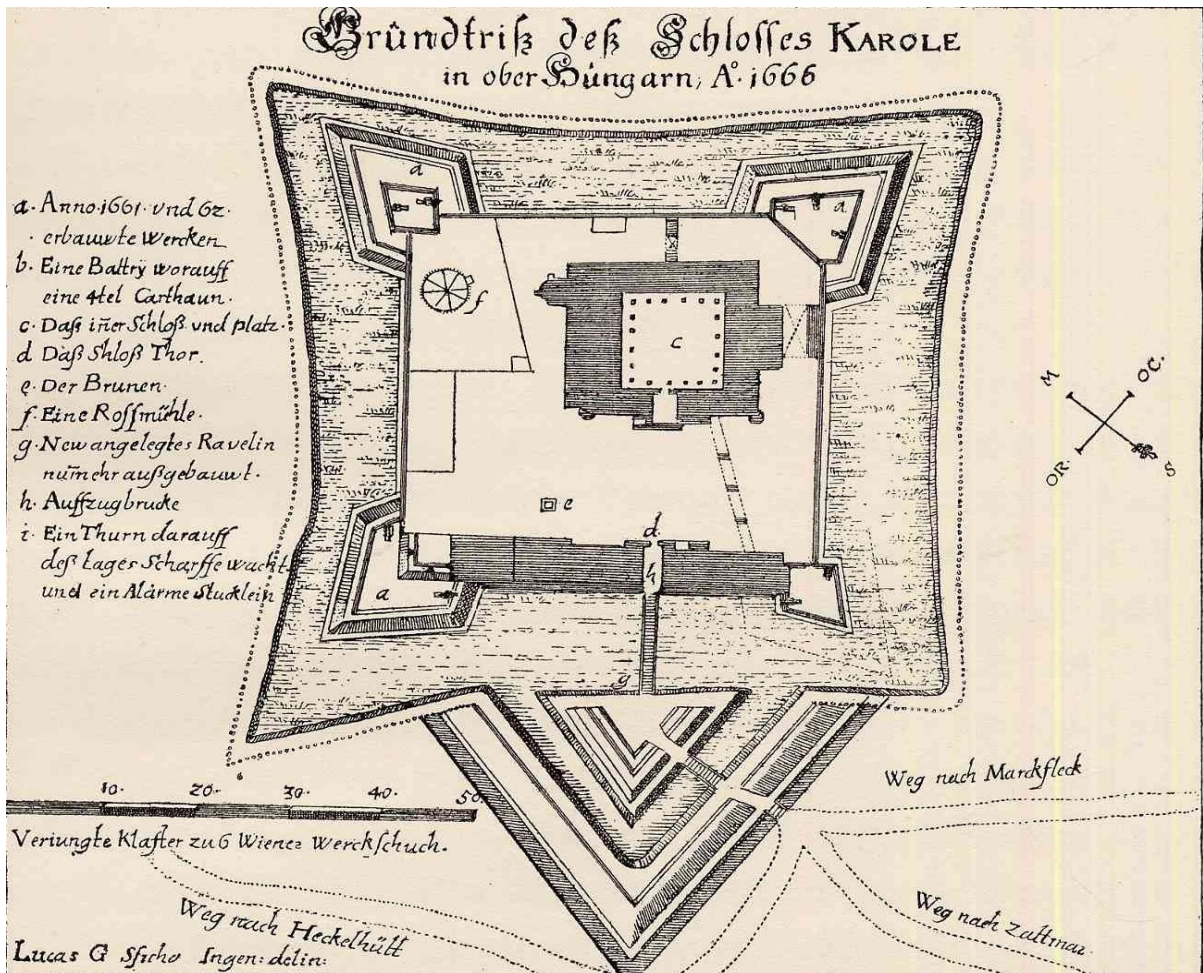 Gründtriß deß Schlosses KAROLE
in ober Hüngarn, Aº. 1666
a. Anno. 1661. vnd 62.
erbauwte Wercken
b. Eine Battrÿ worauff
eine 4tel Carthaun.
c. Daß iñer Schloß vnd platz.
d Daß Shloß Thor.
e. Der Brunen.
f. Eine Rossmühle.
g. New angelegtes Ravelin
num̄ehr außgebauwt.
h. Auffzugbrucke
i. Ein Thurn darauff
deß tages Scharffe wacht
und ein Alārme Stucklein
a
a
f
c
e
d
h
a
g
M
OC.
OR.
S
10. 20. 30. 40. 50.
Veriungte Klafter zu 6 Wiener Werckschuch.
Weg nach Marckfleck
Weg nach Heckelhütt
Weg nach Zattmar
Lucas G Ingen: delin: